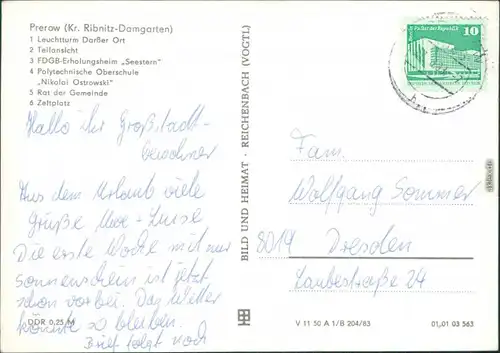 Prerow (Kr. Ribnitz-Damgarten)
1 Leuchtturm Darßer Ort
2 Teilansicht
3 FDGB-Erholungsheim „Seestern“
4 Polytechnische Oberschule
„Nikolai Ostrowski“
5 Rat der Gemeinde
6 Zeltplatz
Hallo ihr Großstadt-
bewohner
Aus dem Urlaub viele
Grüße
Die erste Woche mit nur
Sonnenschein ist jetzt
schon vorbei. Das Wetter
könnte so bleiben.
Brief folgt noch
DDR 0,25 M
BILD UND HEIMAT · REICHENBACH (VOGTL)
10
Fam.
Wolfgang Sommer
8019 Dresden
Laubestraße 24
V 11 50 A 1/B 204/83
01,01 03 563